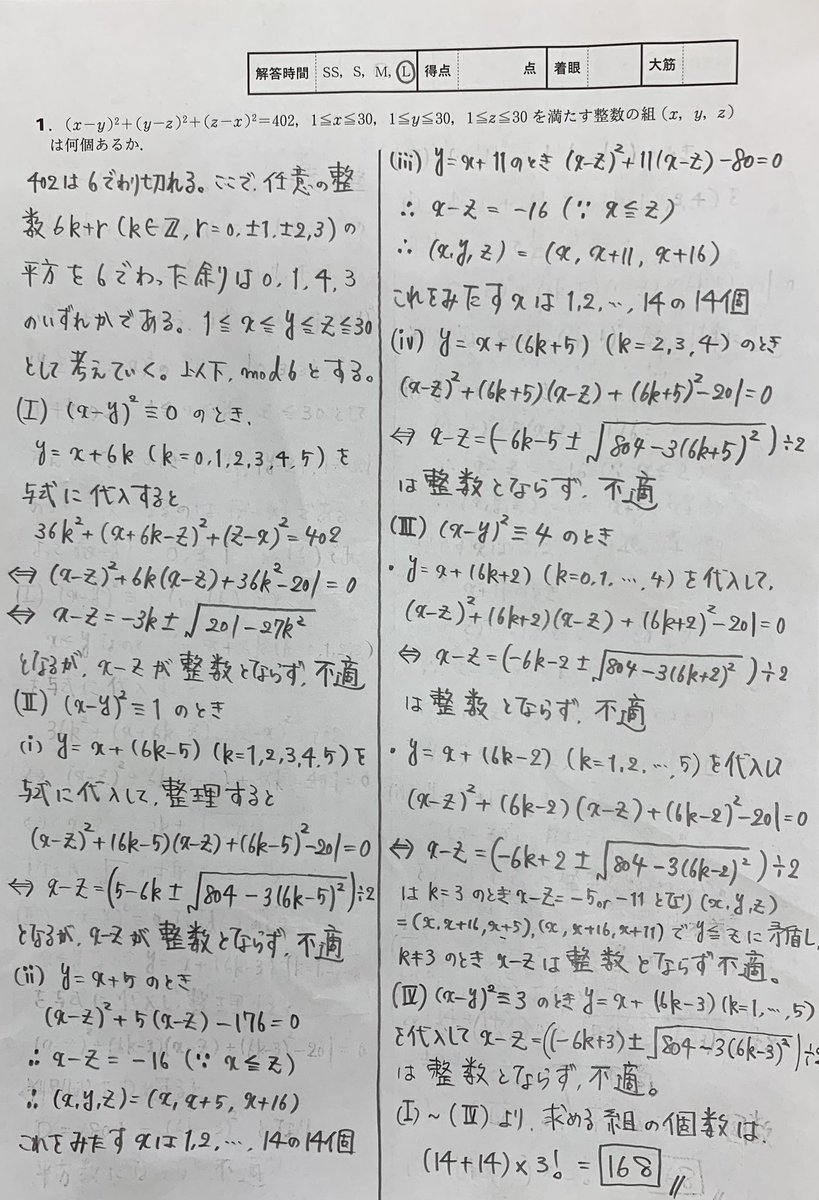 解答時間 SS, S, M, L 得点 点 着眼 大筋
1. (x−y)²+(y−z)²+(z−x)²=402, 1≦x≦30, 1≦y≦30, 1≦z≦30 を満たす整数の組 (x, y, z)
は何個あるか.
402は6でわり切れる。ここで、任意の整
数 6k+r (k∈ℤ, r=0, ±1, ±2, 3) の
平方を6でわった余りは 0, 1, 4, 3
のいずれかである。1≦x≦y≦z≦30
として考えていく。以下, mod6とする。
(Ⅰ) (x−y)²≡0 のとき,
y=x+6k (k=0,1,2,3,4,5) を
与式に代入すると
36k²+(x+6k−z)²+(z−x)²=402
⇔ (x−z)²+6k(x−z)+36k²−201=0
⇔ x−z=−3k±√(201−27k²)
となるが, x−zが整数とならず, 不適
(Ⅱ) (x−y)²≡1 のとき
(i) y=x+(6k−5) (k=1,2,3,4,5) を
与式に代入して, 整理すると
(x−z)²+(6k−5)(x−z)+(6k−5)²−201=0
⇔ x−z=(5−6k±√(804−3(6k−5)²))÷2
となるが, x−zが整数とならず, 不適
(ii) y=x+5 のとき
(x−z)²+5(x−z)−176=0
∴ x−z=−16 (∵ x≦z)
∴ (x,y,z)=(x, x+5, x+16)
これをみたすxは1,2,…,14の14個
(iii) y=x+11のとき (x−z)²+11(x−z)−80=0
∴ x−z=−16 (∵ x≦z)
∴ (x,y,z)=(x, x+11, x+16)
これをみたすxは1,2,…,14の14個
(iv) y=x+(6k+5) (k=2,3,4) のとき
(x−z)²+(6k+5)(x−z)+(6k+5)²−201=0
⇔ x−z=(−6k−5±√(804−3(6k+5)²))÷2
は整数とならず, 不適
(Ⅲ) (x−y)²≡4 のとき
・y=x+(6k+2) (k=0,1,…,4) を代入して,
(x−z)²+(6k+2)(x−z)+(6k+2)²−201=0
⇔ x−z=(−6k−2±√(804−3(6k+2)²))÷2
は整数とならず, 不適
・y=x+(6k−2) (k=1,2,…,5) を代入して
(x−z)²+(6k−2)(x−z)+(6k−2)²−201=0
⇔ x−z=(−6k+2±√(804−3(6k−2)²))÷2
は k=3 のとき x−z=−5or−11 となり (x,y,z)
=(x,x+16,x+5),(x,x+16,x+11) で y≦z に矛盾し,
k≠3 のとき x−z は整数とならず不適。
(Ⅳ) (x−y)²≡3 のとき y=x+(6k−3) (k=1,…,5)
を代入して x−z=((−6k+3)±√(804−3(6k−3)²))÷2
は整数とならず, 不適。
(Ⅰ)~(Ⅳ)より, 求める組の個数は,
(14+14)×3!=168